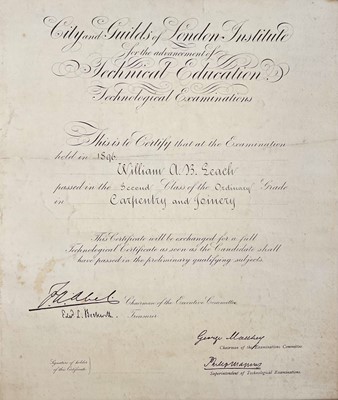 City and Guilds of London Institute
for the advancement of
Technical Education
Technological Examinations
This is to Certify that at the Examination
held in 1896
William A. B. Leach
passed in the Second Class of the Ordinary Grade
in Carpentry and Joinery
This Certificate will be exchanged for a full
Technological Certificate as soon as the Candidate shall
have passed in the preliminary qualifying subjects.
F A Abel Chairman of the Executive Committee
Treasurer
George Matthey
Chairman of the Examinations Committee
Philip Magnus
Superintendent of Technological Examinations
Signature of holder
of this Certificate